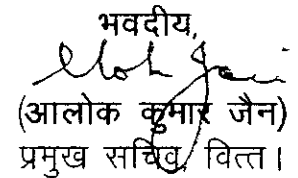 भवदीय,
(आलोक कुमार जैन)
प्रमुख सचिव, वित्त।